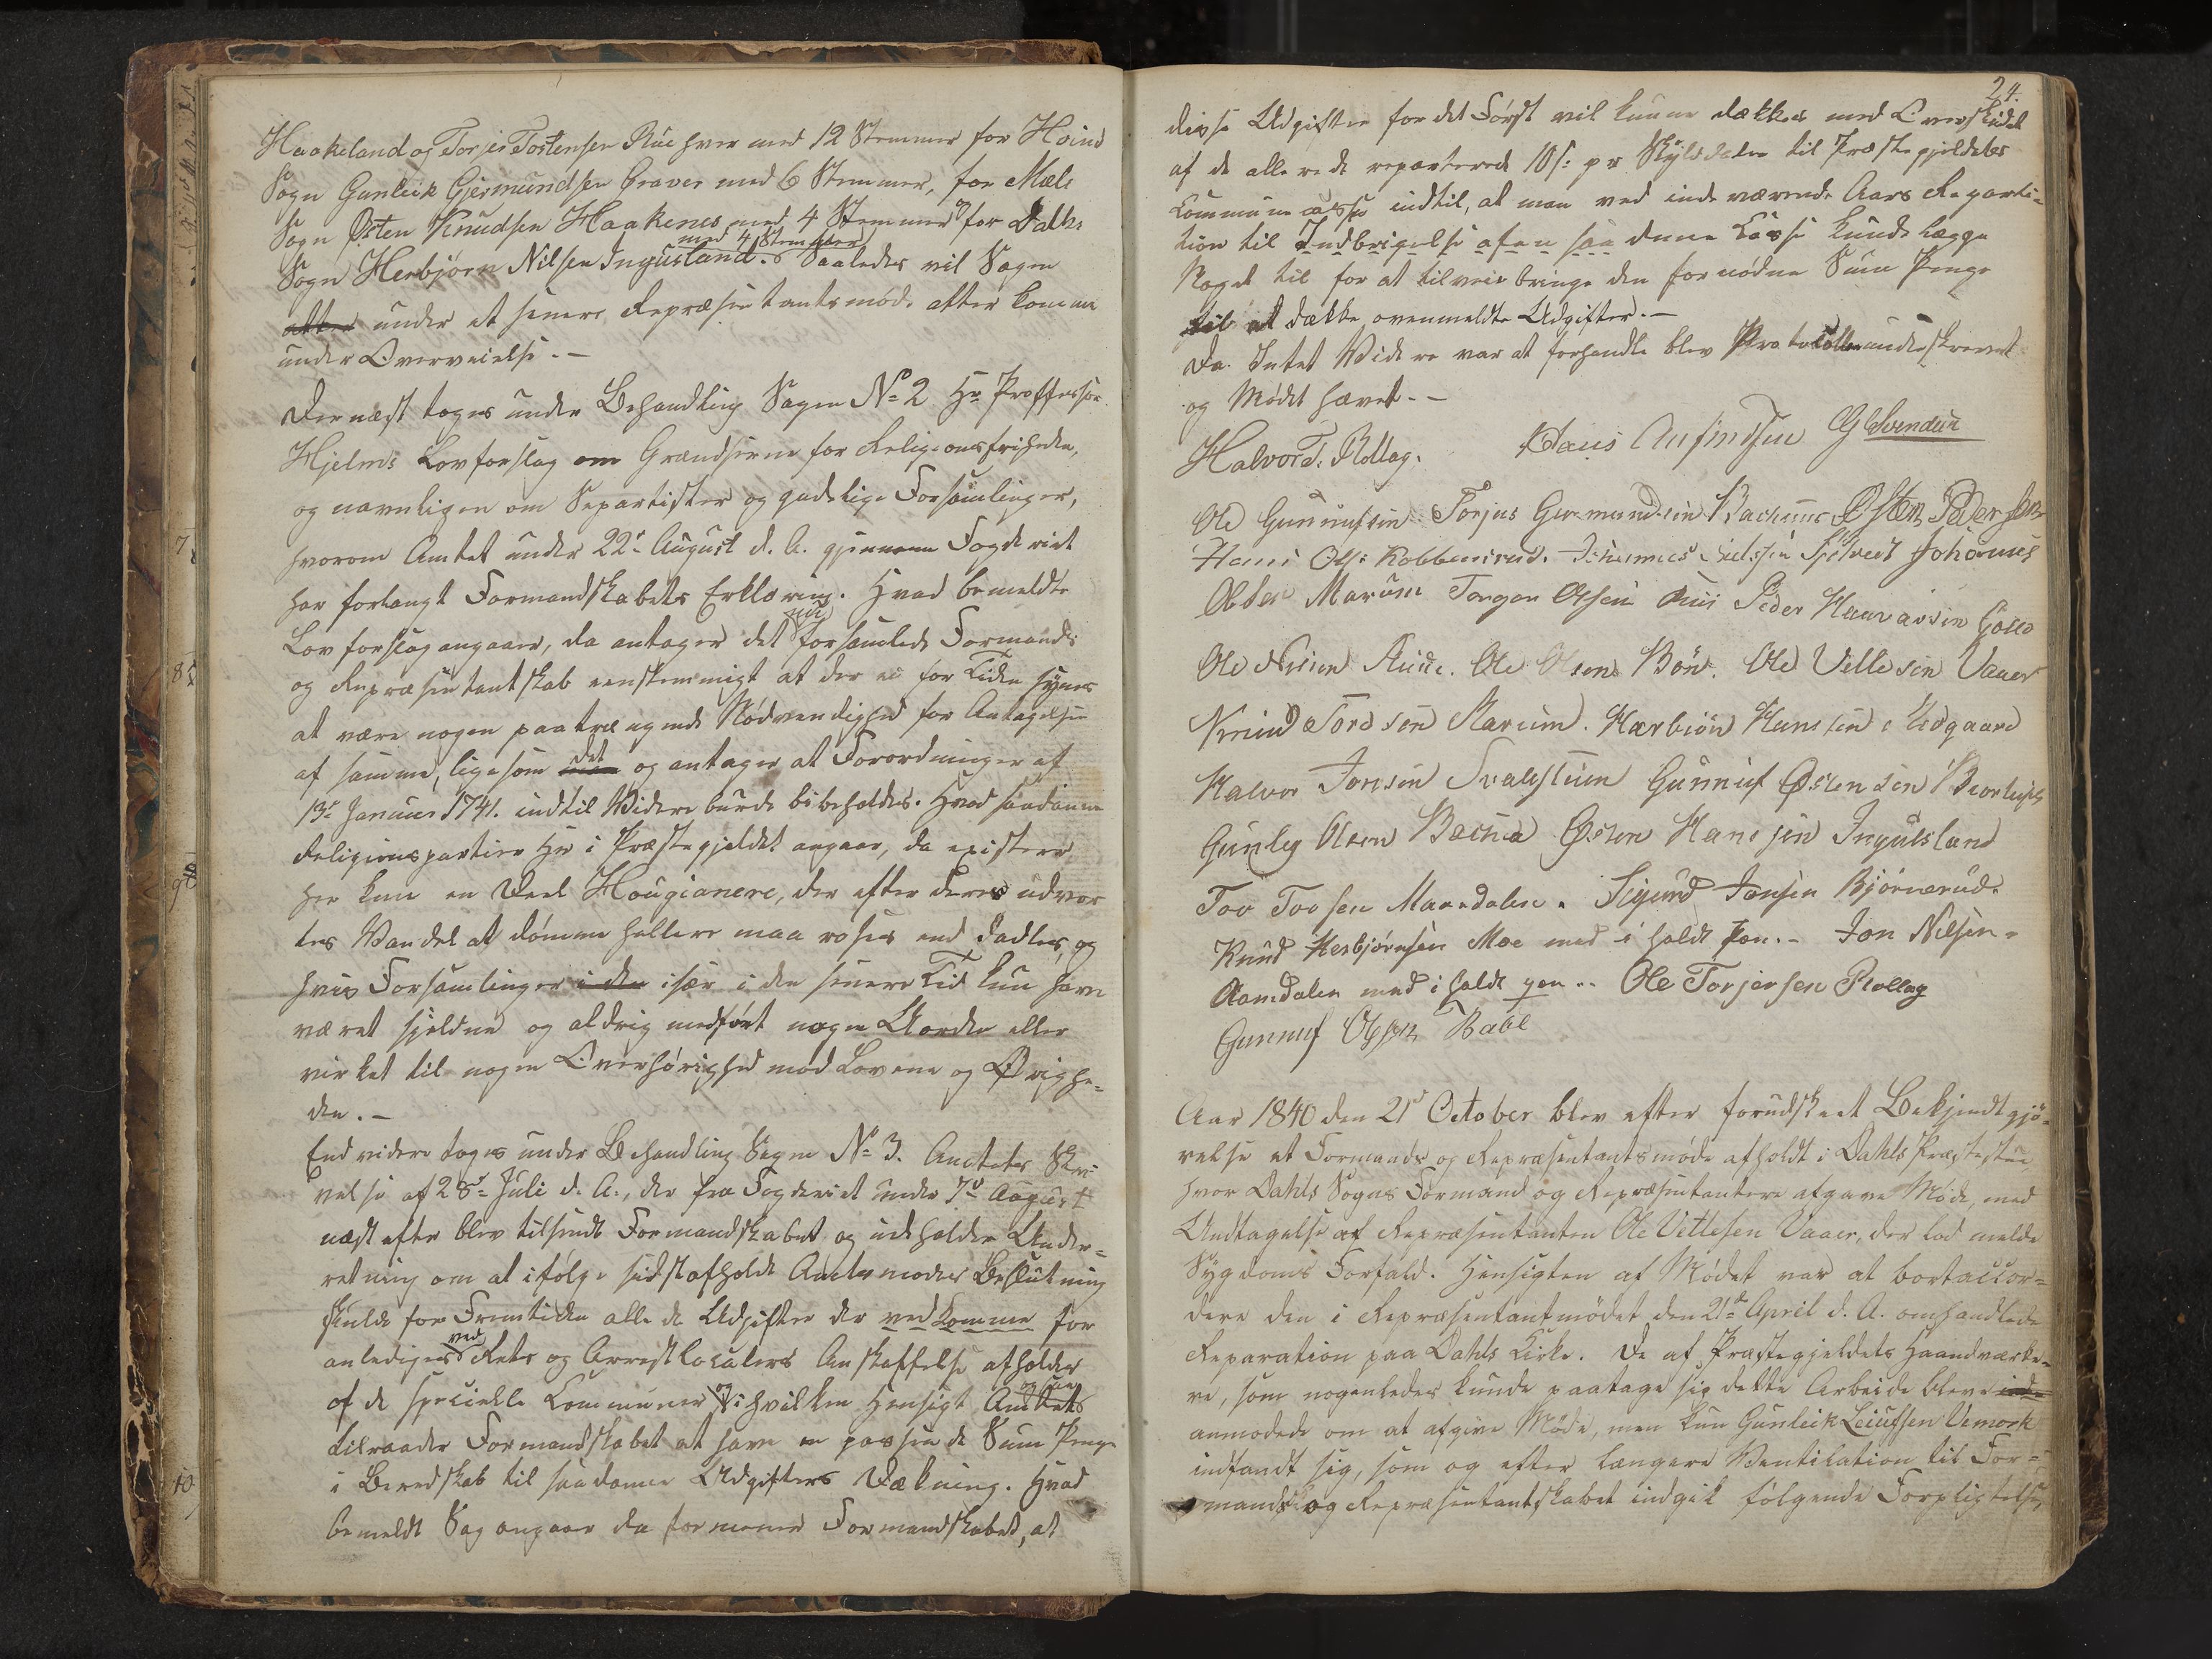 Haakeland og Torjer Tostensen Rue hver med 12 Stemmer for Hovind
Sogn Gunleik Gjermundsen Graver med 6 Stemmer, for Mæls
Sogn Østen Knudsen Haakenes med 4 Stemmer for Dalhs
med 4 Stemmer
Sogn Herbjørn Nilsen Ingulsland. Saaledes vil Sagen
atter under et senere Repræsentantsmøde atter komme
under Overveielse. -
Dernæst toges under Behandling Sagen No 2 Hr Proffessor
Hjelms Lovforslag om Grændserne for Religionsfriheden,
og navnligen om Separtister og gudelige Forsamlinger,
hvorom Amtet under 22d August d. A. gjennem Fogderiet
har forlangt Formandskabets Erklæring. Hvad bemeldte
Lovforslag angaaer, da antager det forsamlede Formands
og Repræsentantskab eenstemmigt at der ei for Tiden synes
at være nogen paatrængende Nødvendighed for Antagelsen
det
af samme, ligesom og antager at Forordningen af
13d Januar 1741. indtil Videre burde bibeholdes. Hvad saadanne
Religionspartier her i Præstegjeldet angaar, da existere
her kun en Deel Hougianere, der efter deres udvor
tes Vandel at dømme hellere maa roses end dadles, og
hvis Forsamlinger i den især i den senere Tid kun have
været sjeldne og aldrig medført nogen Uorden eller
virket til nogen Overhørighed mod Lovene og Øvrighe=
den. -
End videre toges under Behandling Sagen No 3. Amtets Skri
velse af 28d Juli d. A., der fra Fogderiet under 7d August
næst efter blev tilsendt Formandskabet og indeholder Under=
retning om at ifølge sidstafholdt Amtsmødes Beslutning
skulde for Fremtiden alle de Udgifter der vedkomme for
ved
anlediges Rets og Arrestlocalers Anskaffelse afholdes
og
af de specielle Communer i hvilken Hensigt Amtets
tilraader Formandskabet at have en passende Sum Penge
i Beredskab til saadanne Udgifters Dækning. Hvad
bemeldt Sag angaar da formener Formandskabet, at
7
8
9
10
24.
disse Udgifter for det Først vil kunne dækkes med Overskudet
af de allerede reparterede 10 s: pr Skylddaler til Præstegjeldets
Communecasse indtil, at man ved indeværende Aars Reparti=
tion til Indbringelse afen saa denne Casse kunde lægge
Noget til for at tilveiebringe den fornødne Sum Penge
til at dække ovenmeldte Udgifter. -
Da Intet Videre var at forhandle blev Protocollen underskrevet
og Mødet hævet. -
Halvor T. Rollag. Hans Anfindsen G Svendsen
Ole Gunnufsen Torjus Germundsen Bachuus Østen Pedersen
Hans Ols: Kobbenrud. Johannes Nielsen Johannes
Olsen Marum Torger Olsen Rui Peder Haavarsen Gøllo
Ole Nielsen Rude. Ole Olsen Bøn. Ole Vetlesen Vaaer
Knud Tordsen Marum. Hærbiøn Hansen Ødgaard
Halvor Jonsen Svalestuen Gunnuf Østensen
Gunleg Olsen Bæcha Østen Hansen Ingulsland
Tov Tovsen Maredalen. Sigurd Jonsen Bjørnerud.
Knud Herbjørnsen Moe med i holdt Pen. - Jon Nilsen
Aamdalen med i holdt pen .. Ole Torjersen Rollag
Gunnuf Olsen Babe
Aar 1840 den 21d October blev efter forudskeet Bekjendtgjø=
relse et Formands og Repræsentantsmøde afholdt i Dahls Præstestue
hvor Dahls Sogns Formand og Repræsentantere afgave Møde, med
Undtagelse af Repræsentanten Ole Vetlesen Vaaer, der lod melde
Sygdoms Forfald. Hensigten af Mødet var at bortaccor=
dere den i Repræsentantmødet den 21de April d. A. omhandlede
Reparation paa Dahls Kirke. De af Præstegjeldets Haandværke=
re, som nogenledes kunde paatage sig dette Arbeide bleve
anmodede om at afgive Møde, men kun Gunleik Leiufsen Vemork
indfandt sig, som og efter længere Ventilation til For=
mands og Repræsentantskabet indgik følgende Forpligtelse,